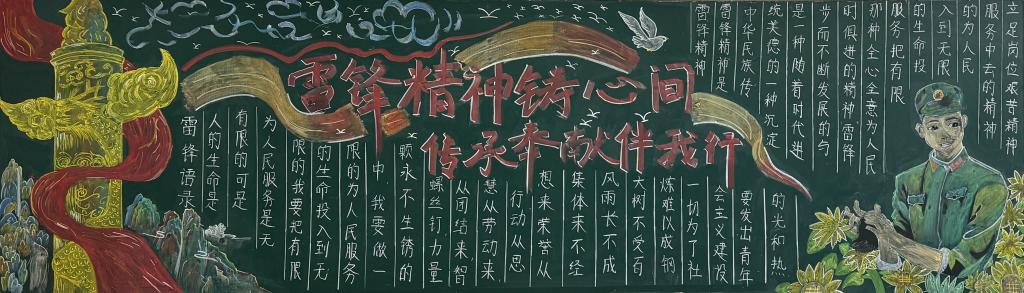 雷锋精神铸心间
传承奉献伴我行
雷锋语录
人的生命是
有限的可是
为人民服务是无
限的我要把有限
的生命投入到无
限的为人民服务
中 我要做一
颗永不生锈的
螺丝钉力量
从团结来智
慧从劳动来
行动从思
想来荣誉从
集体来不经
风雨长不成
大树不受百
炼难以成钢
一切为了社
会主义建设
要发出青年
的光和热
雷锋精神
雷锋精神是
中华民族传
统美德的一种沉淀
是一种随着时代进
步而不断发展的与
时俱进的精神雷锋
那种全心全意为人民
服务把有限
的生命投
入到无限
的为人民
服务中去的精神
立足岗位 苦精神